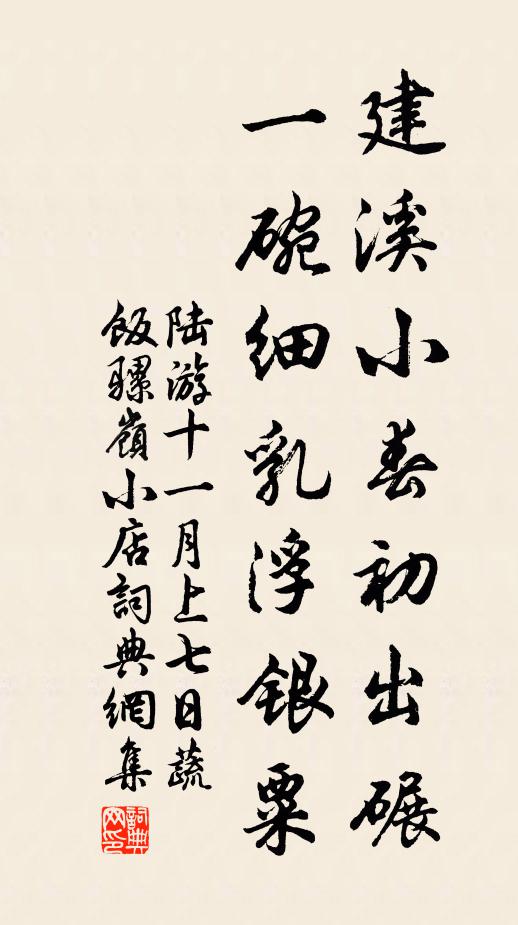 建溪小春初出碾
一碗细乳浮银粟
陆游十一月上七日蔬
饭骡岭小店詞典網集
詞典
网印